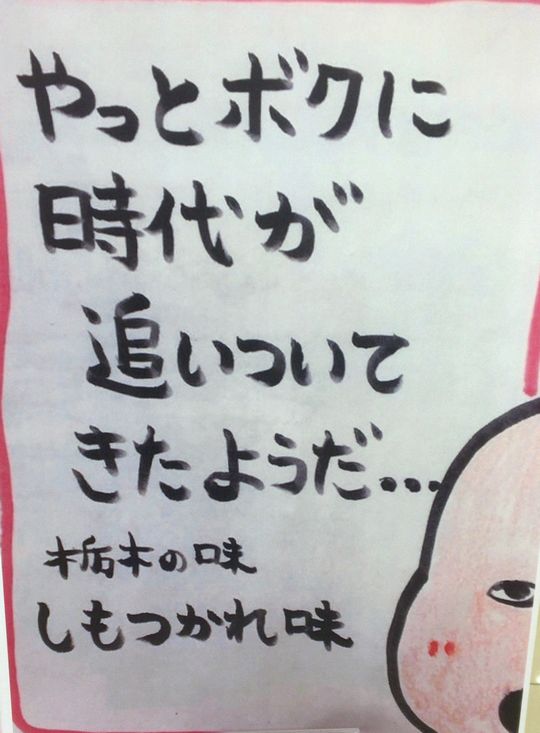 やっとボクに
時代が
追いついて
きたようだ...
栃木の味
しもつかれ味